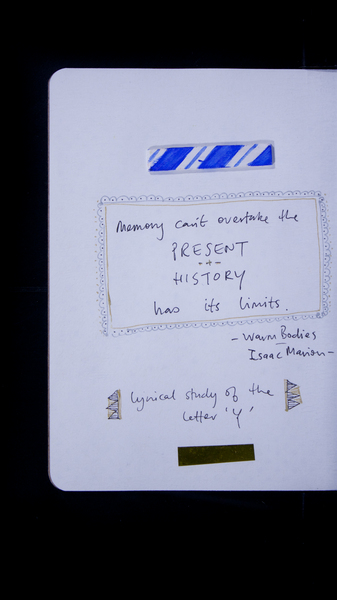 Memory can't overtake the
PRESENT
HISTORY
has its limits.
- Warm Bodies
Isaac Marion -
Lyrical study of the
letter 'Y'